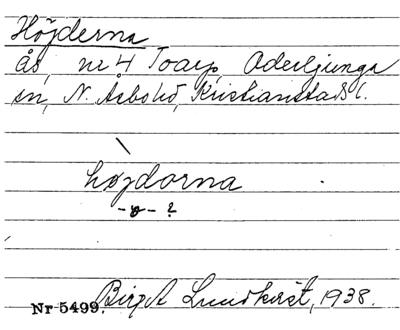 Höjderna
ås, nr 4 Toarp, Oderljunga
sn, N. Åsbo hd, Kristianstads l.
højdorna
-ø- ?
Birgit Lundkvist, 1938.
Nr 5499.